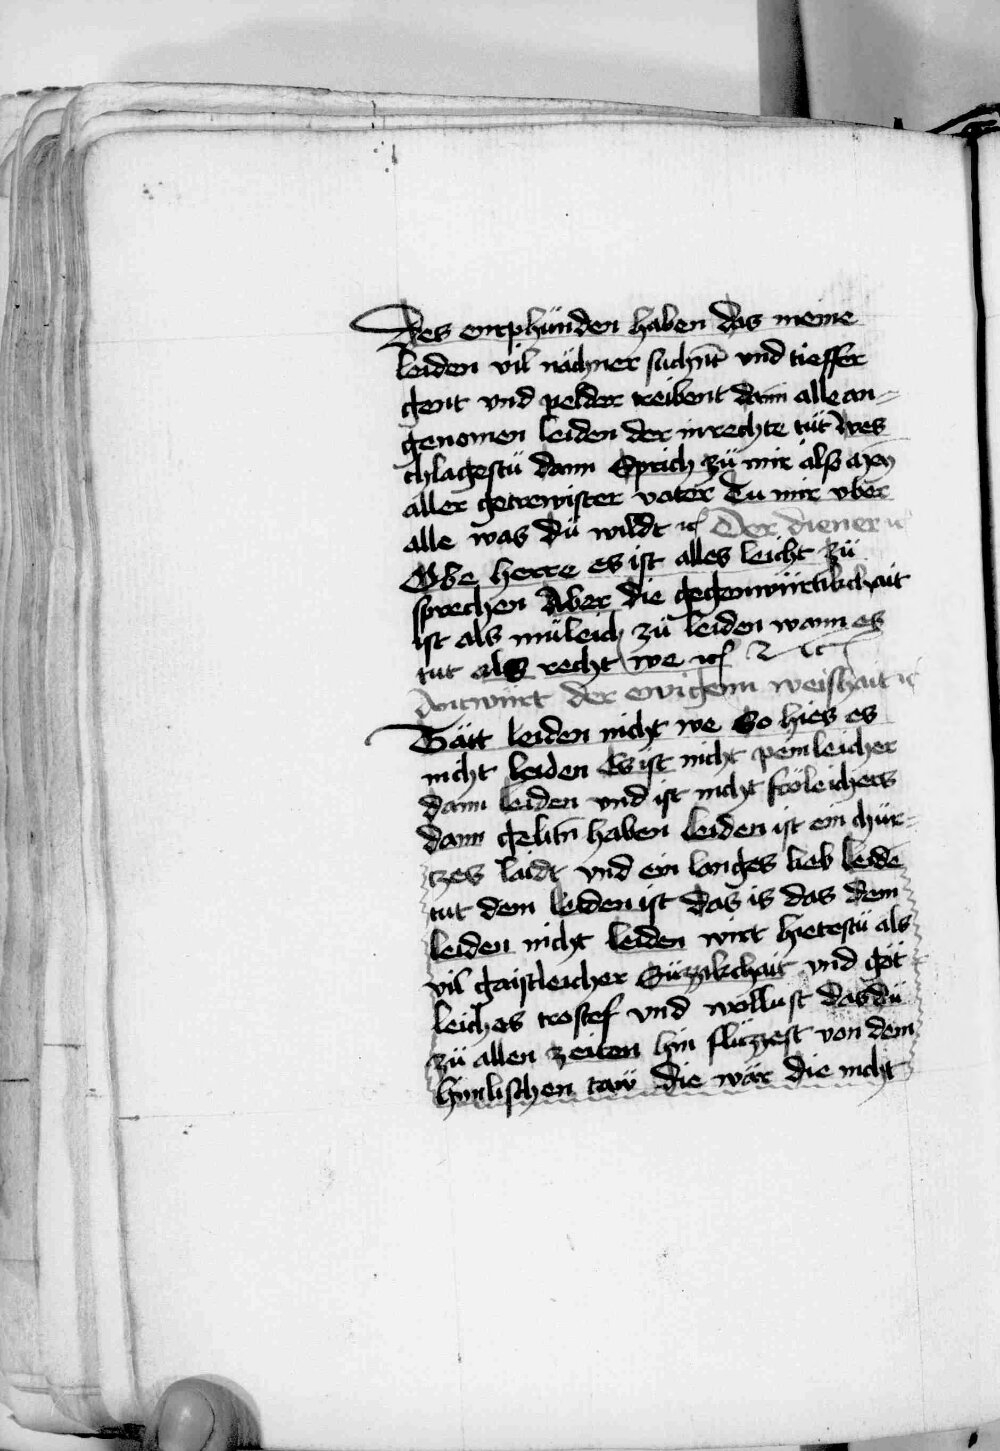 Des enphünden haben das meine
leiden vil nächner suchnt vnd tieffer
gent vnd pelder treibent dann alle an-
genomen leiden der inrechte tüt Wes
chlagestü dann Sprich zü mir also mein
aller getrewister vater Tu mir vber
alle was dü wildt etc Der diener etc
Obe herre es ist alles leicht zü
sprechen Aber die gegenwürtikchait
ist als müleich zü leiden wann es
tut als recht we etc
Antwürt der ewigenn weishait etc
Tätt leiden nicht we So hies es
nicht leiden Es ist nicht peinleicher
dann leiden vnd ist nicht fröleichers
dann gelitn haben Leiden ist ein chür-
tzes laidt vnd ein langes lieb Leidē
tut dem leiden ist das is das dem
leiden nicht leiden wirt Hietestü als
vil gaistleicher Süzzikchait vnd göt
leiches trostes vnd wollust das dü
zü allen zeiten hin flüzzest von dem
himlischen taw die wär die nicht